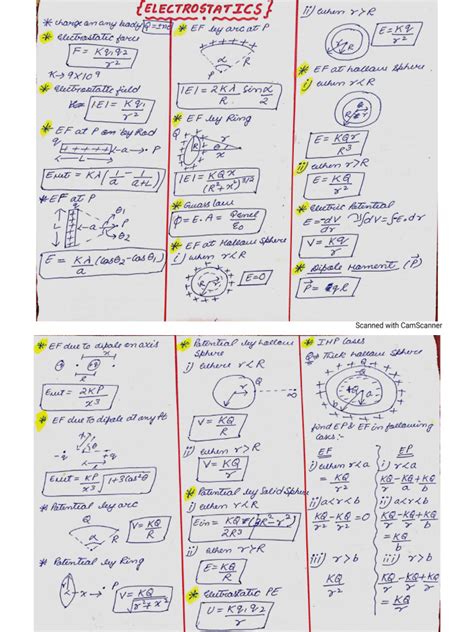 {ELECTROSTATICS}
* charge on any body
* electrostatic force
F = KQ1Q2
r²
K → 9 X 10⁹
* electrostatic field
|E| = KQ1
r²
* EF at P on by Rod
← L →← a → P
Enet = Kλ ( 1/a − 1/(a+L) )
* EF at P
L
θ1
a
θ2
E = Kλ (cosθ2 - cosθ1)
a
* EF by arc at P
α
P
|E| = 2Kλ Sin α
R 2
* EF by Ring
Q
R
r
x
P
|E| = KQx
(R²+x²)^3/2
* Gauss law
Φ = E.A =
ε0
* EF at Hollow Sphere
i) when r<R
E=0
ii) when r>R
E = KQ
r²
* EF at Hollow Sphere
i) when r<R
E = KQr
R³
ii) when r>R
E = KQ
r²
* Electric Potential
E = -dV
dr
∫dV = ∫E.dr
V = KQ
r
* Dipole Moment (P⃗)
Scanned with CamScanner
* EF due to dipole on axis
x
P
Enet = 2KP
x³
* EF due to dipole at any Pt
-q
q
Enet = KP √1+3cos²θ
x³
* Potential by arc
Q
R
α
V = KQ
R
* Potential by Ring
x
P
V = KQ
√r²+x²
* Potential by hollow
Sphere
i) where r<R
Q
r
∞
V = KQ
R
ii) when r>R
V = KQ
r
* Potential by Solid Sphere
i) when r<R
2R³
ii) when r>R
E = KQ
r²
* Electrostatic PE
U = KQ1Q2
r
* IMP Cases
Q → thick hollow Sphere
+Q
a
b
find EP & EF in following
cases:-
EF
i) when r<a
KQ
r²
ii) a<r<b
KQ - KQ = 0
r² r²
iii) r>b
KQ
r²
EP
i) r<a
KQ - KQ + KQ
r a b
ii) a<r<b
KQ - KQ + KQ
r r b
= KQ
b
iii) r>b
KQ - KQ + KQ
r r r
= KQ
r